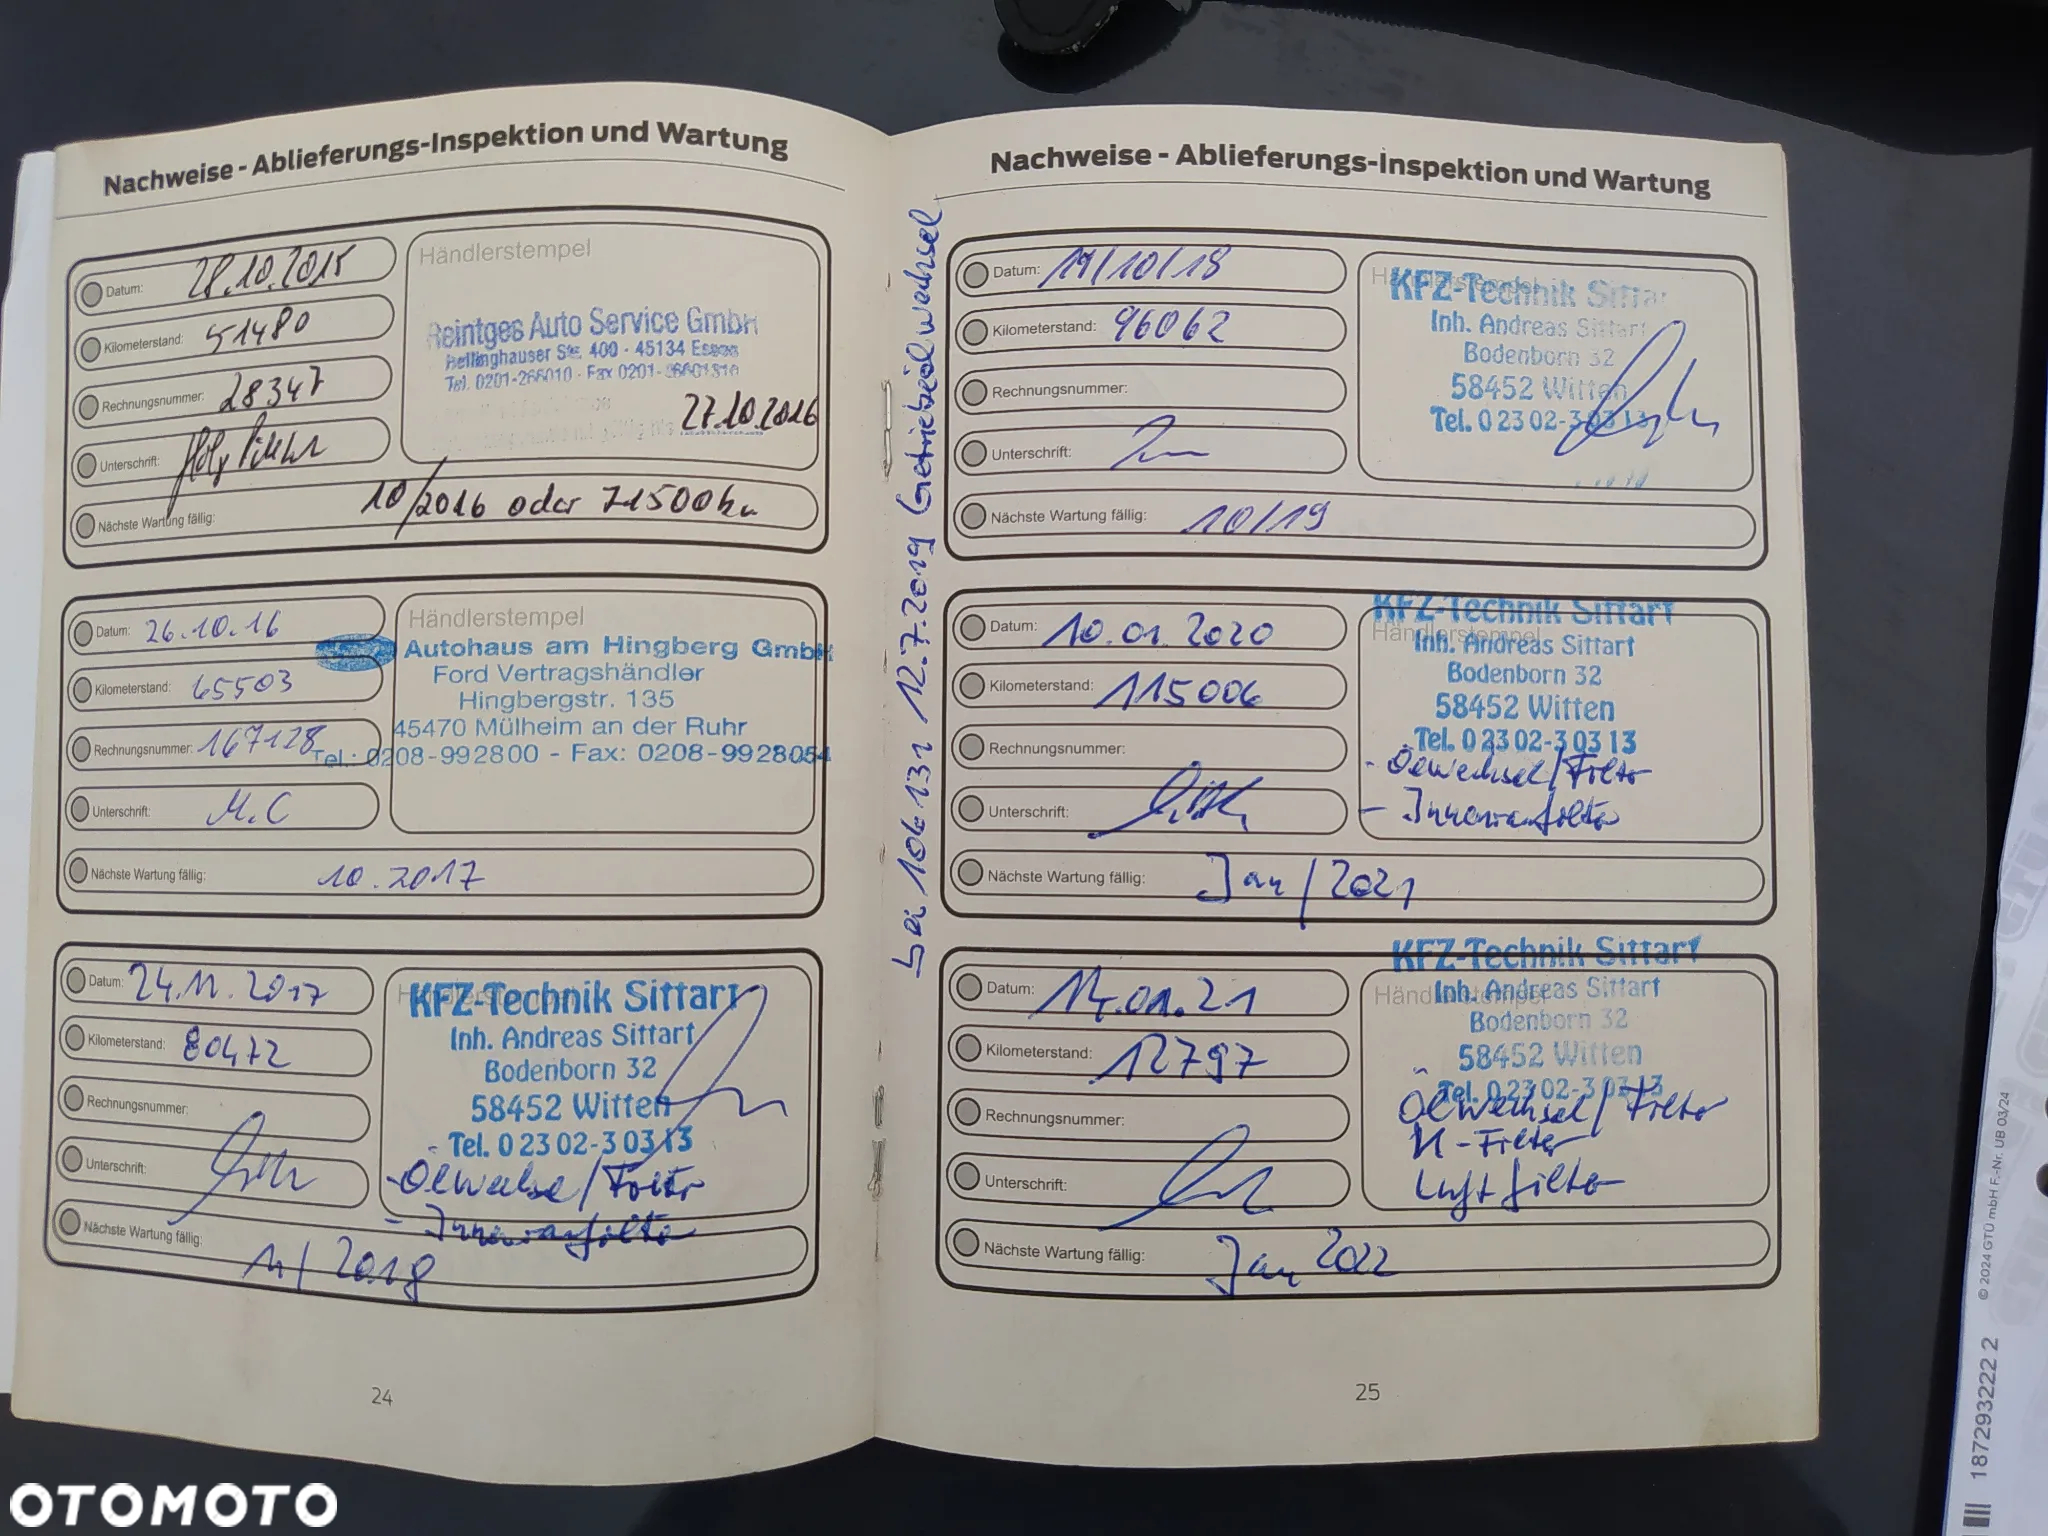 Nachweise - Ablieferungs-Inspektion und Wartung
Datum: 28.10.2015
Kilometerstand: 51480
Rechnungsnummer: 28347
Unterschrift:
Nächste Wartung fällig: 10/2016 oder 71500km
Händlerstempel
Reintges Auto Service GmbH
Rellinghauser Str. 400 · 45134 Essen
Tel. 0201-266010 · Fax 0201-
27.10.2016
Datum: 26.10.16
Kilometerstand: 65503
Rechnungsnummer: 167128
Unterschrift: M.C
Nächste Wartung fällig: 10.2017
Händlerstempel
Autohaus am Hingberg GmbH
Ford Vertragshändler
Hingbergstr. 135
45470 Mülheim an der Ruhr
Tel.: 0208-992800 - Fax: 0208-9928054
Datum: 24.11.2017
Kilometerstand: 80472
Rechnungsnummer:
Unterschrift:
Nächste Wartung fällig: 11/2018
Händlerstempel
KFZ-Technik Sittart
Inh. Andreas Sittart
Bodenborn 32
58452 Witten
Tel. 0 23 02-3 03 13
- Ölwechsel/Filter
- Innenraumfilter
24
bei 106131 12.7.2019 Getriebeölwechsel
Nachweise - Ablieferungs-Inspektion und Wartung
Datum: 19/10/18
Kilometerstand: 96062
Rechnungsnummer:
Unterschrift:
Nächste Wartung fällig: 10/19
Händlerstempel
KFZ-Technik Sittar
Inh. Andreas Sittart
Bodenborn 32
58452 Witten
Tel. 0 23 02-3 03 13
Datum: 10.01.2020
Kilometerstand: 115006
Rechnungsnummer:
Unterschrift:
Nächste Wartung fällig: Jan/2021
KFZ-Technik Sittart
Händlerstempel
Inh. Andreas Sittart
Bodenborn 32
58452 Witten
Tel. 0 23 02-3 03 13
- Ölwechsel/Filter
- Innenraumfilter
Datum: 14.01.21
Kilometerstand: 12797
Rechnungsnummer:
Unterschrift:
Nächste Wartung fällig: Jan 2022
KFZ-Technik Sittart
Händlerstempel
Inh. Andreas Sittart
Bodenborn 32
58452 Witten
Tel. 0 23 02-3 03 13
Ölwechsel/Filter
K-Filter
Luftfilter
25
© 2024 GTÜ mbH F.-Nr. UB 03/24
187293222 2
OTOMOTO